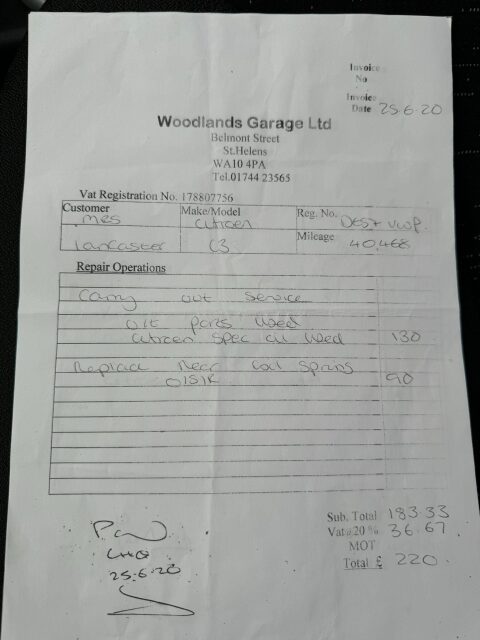 Invoice
No
Invoice
Date 25.6.20
Woodlands Garage Ltd
Belmont Street
St.Helens
WA10 4PA
Tel.01744 23565
Vat Registration No. 178807756
Customer Make/Model Reg. No.
Mrs Citroen
Lancaster C3 Mileage 40,468
Repair Operations
Carry out service
parts used
Citroen spec oil used 130
Replace rear coil springs
O/S/R 90
Sub. Total 183.33
Vat@20% 36.67
MOT
Total £ 220.
25.6.20